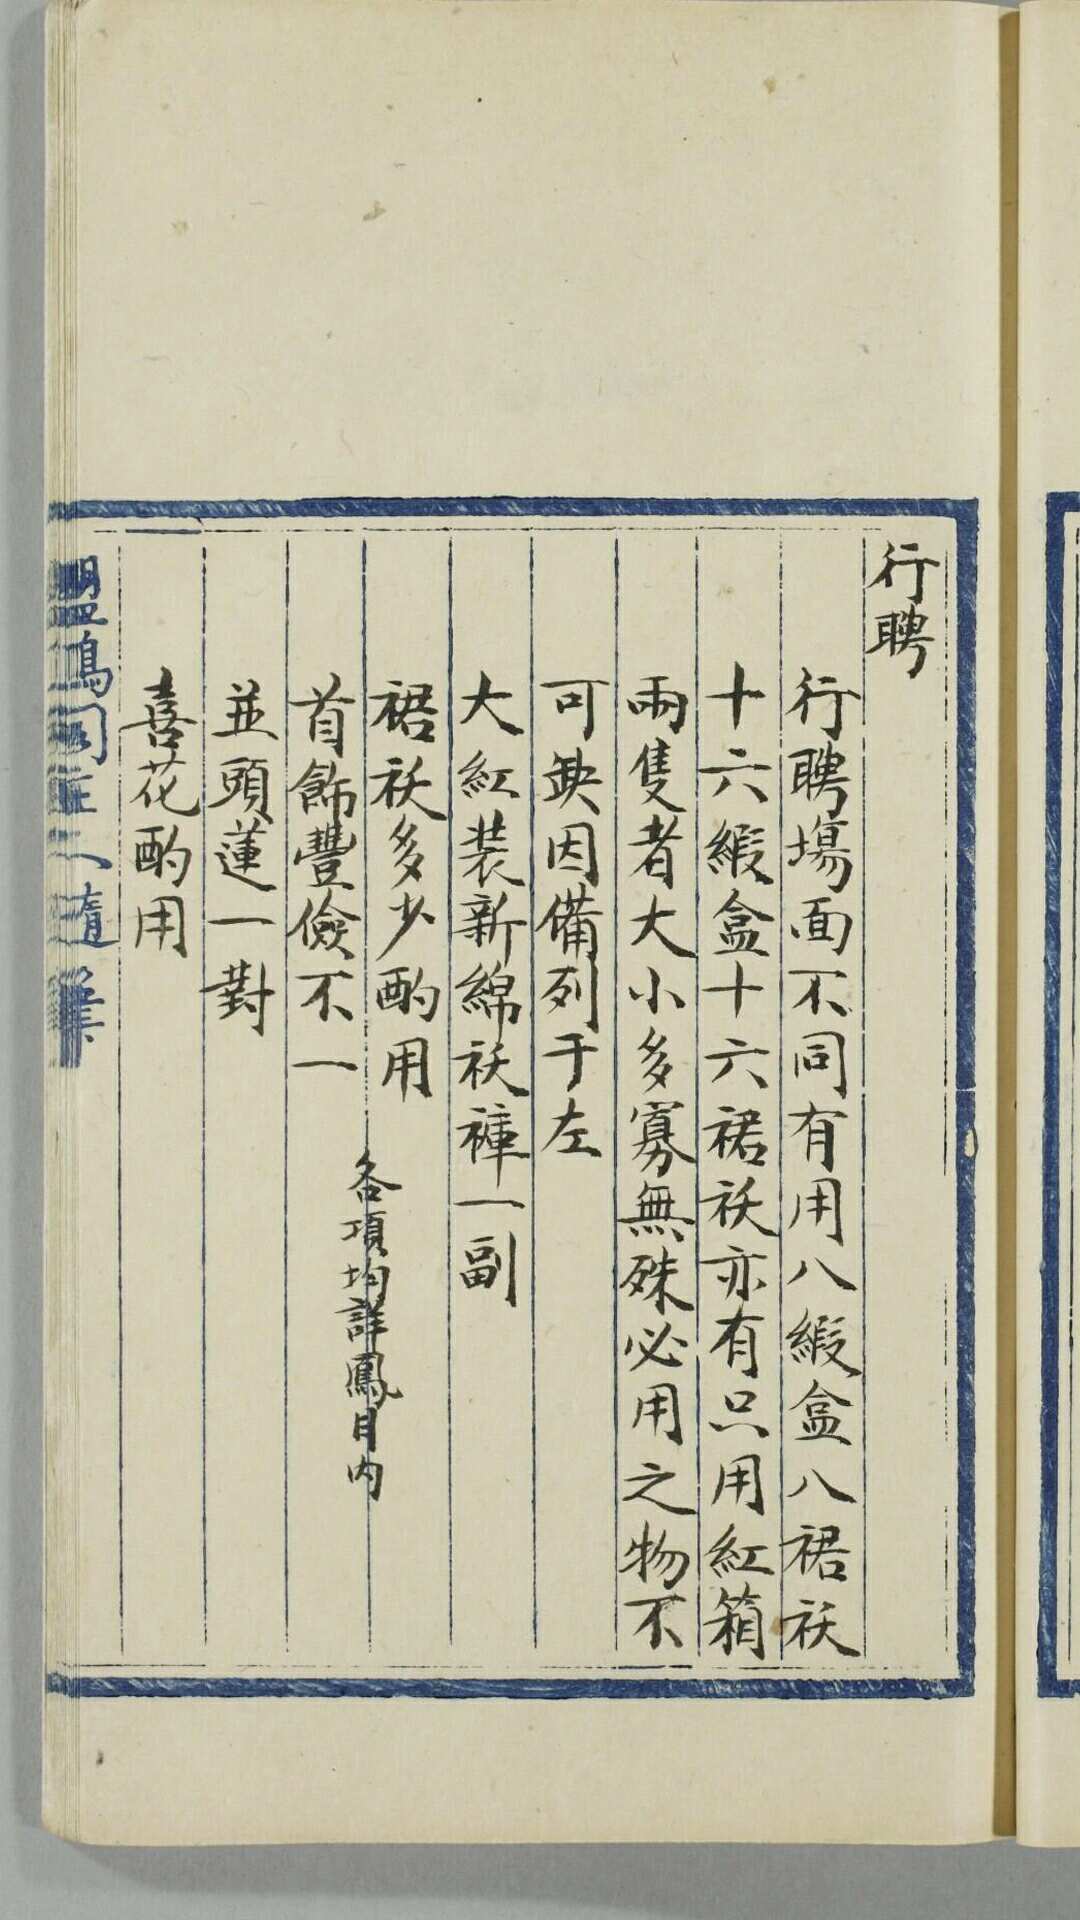 行聘
行聘塲面不同有用八緞盒八裙袄
十六緞盒十六裙袄亦有只用紅箱
兩隻者大小多寡無殊必用之物不
可缺因備列于左
大紅裝新綿袄褲一副
裙袄多少酌用
首飾豐儉不一
各項均詳鳳目内
並頭蓮一對
喜花酌用
盟鷗
隨筆